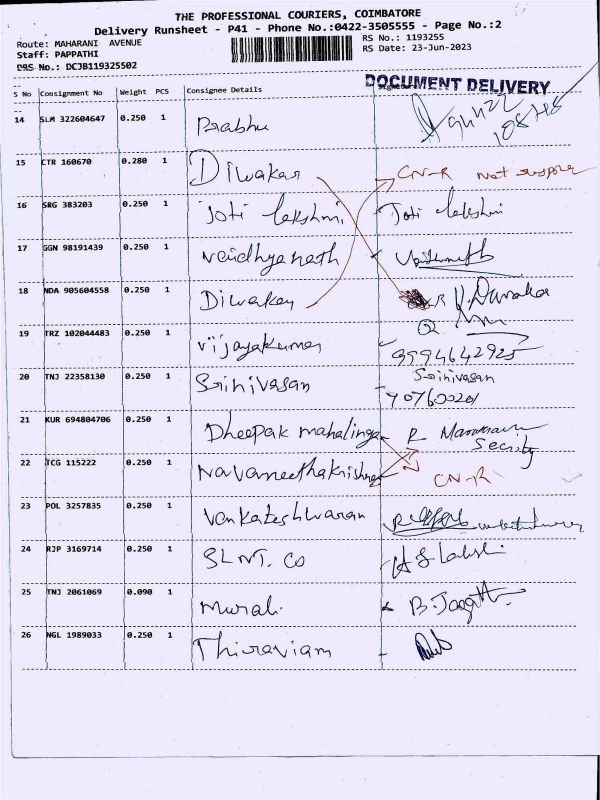 THE PROFESSIONAL COURIERS, COIMBATORE
Delivery Runsheet - P41 - Phone No.:0422-3505555 - Page No.:2
Route: MAHARANI AVENUE RS No.: 1193255
Staff: PAPPATHI RS Date: 23-Jun-2023
DRS No.: DCJB119325502
DOCUMENT DELIVERY
S No Consignment No Weight PCS Consignee Details
14 SLM 322604647 0.250 1 Prabhu
15 CTR 160670 0.280 1 Diwakar CN-R Not
16 SRG 383203 0.250 1 Joti lekshmi Joti lekshmi
17 GGN 98191439 0.250 1 Vaidhyanath
18 NDA 905604558 0.250 1 Diwakar
19 TRZ 102044483 0.250 1 Vijayakumar 9994642925
20 TNJ 22358130 0.250 1 Srinivasan Srinivasan
21 KUR 694804706 0.250 1 Dheepak mahalinga R
Security
22 TCG 115222 0.250 1 Navaneethakrishna CN-R
23 POL 3257835 0.250 1 Venkateshwaran
24 RJP 3169714 0.250 1 SLNT. CO
25 TNJ 2061069 0.090 1 Murali
26 NGL 1989033 0.250 1 Thiraviam